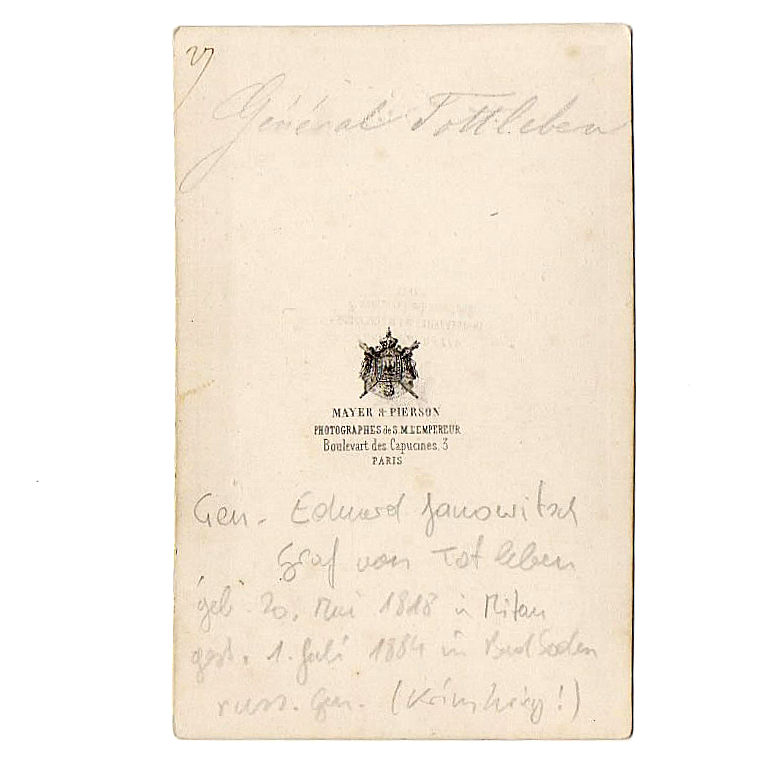 27
Général Tottleben
MAYER & PIERSON
PHOTOGRAPHES de S.M.L'EMPEREUR
Boulevart des Capucines, 3
PARIS
Gen. Eduard Janowitsch
Graf von Totleben
geb. 20. Mai 1818 in Mitau
gest. 1. Juli 1884 in Bad Soden
russ. Gen. (Krimkrieg!)